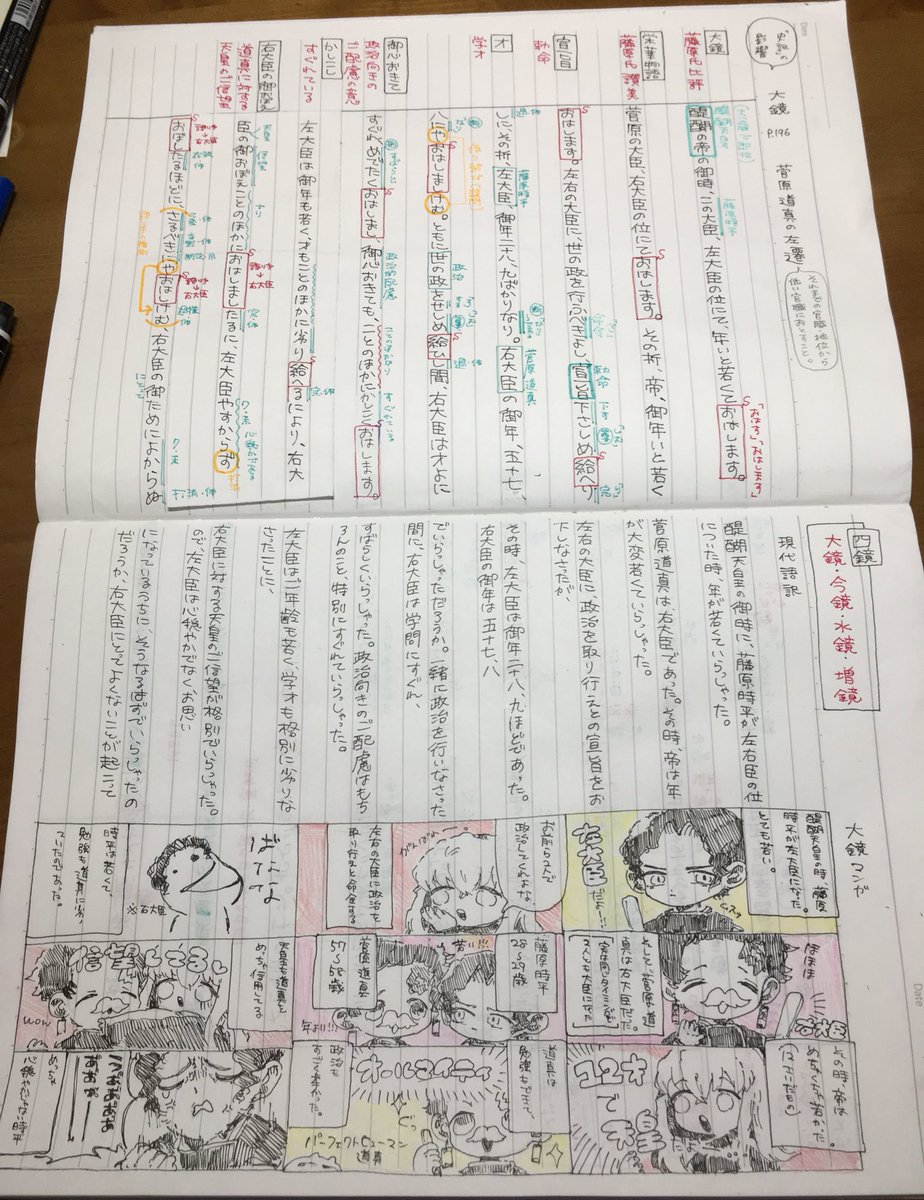 「史記」の
影響
大鏡 P.196 菅原道真の左遷
それまでの官職・地位から
低い官職におとすこと。
大鏡
藤原氏批評
栄華物語
藤原氏讃美
宣旨
勅命
才
学才
御心おきて
政治向きの
ご配慮の意
かしこし
すぐれている
右大臣の御覚え
道真に対する
天皇のご信望
「おはす」「おはします」
醍醐の帝の御時、この大臣、左大臣の位にて、年いと若くておはします。
菅原の大臣、右大臣の位にておはします。その折、帝、御年いと若く
おはします。左右の大臣に世の政を行ふべきよし、宣旨下さしめ給へり
しに、その折、左大臣、御年二十八、九ばかりなり。右大臣の御年、五十七、
八にやおはしましけむ。ともに世の政をせしめ給ひし間、右大臣は才よに
すぐれめでたくおはしまし、御心おきても、ことのほかにかしこくおはします。
左大臣は御年も若く、才もことのほかに劣り給へるにより、右大
臣の御おぼえことのほかにおはしましたるに、左大臣やすからず
おぼしたるほどに、さるべきにやおはしけむ、右大臣の御ためによからぬ
四鏡
大鏡・今鏡・水鏡・増鏡
現代語訳
醍醐天皇の御時に、藤原時平が左右臣の位
についた時、年が若くていらっしゃった。
菅原道真は右大臣であった。その時、帝は年
が大変若くていらっしゃった。
左右の大臣に、政治を取り行えとの宣旨をお
下しなさったが、
その時、左大臣は御年二十八、九ほどであった。
右大臣の御年は五十七、八
でいらっしゃっただろうか。一緒に政治を行いなさった
間に、右大臣は学問にすぐれ、
すばらしくいらっしゃった。政治向きのご配慮はもち
ろんのこと、特別にすぐれていらっしゃった。
左大臣はご年齢も若く、学才も格別に劣りな
さったことに、
右大臣に対する天皇のご信望が格別でいらっしゃった。
ので、左大臣は心穏やかでなくお思い
になっているうちに、そうなるはずでいらっしゃったの
だろうか、右大臣にとってよくないことが起こって
大鏡マンガ
醍醐天皇の時、藤原
時平が左大臣になった。
とても若い。
左大臣だよー!!
左右の大臣に政治を
取り行えと命令する
時平は若くて
勉強も道真に劣
っていたのであった。
※右大臣
ほほほ
藤原時平
28〜29歳
若い!!!
菅原道真
57〜58歳
年より!!
天皇も道真を
めっちゃ信用してる
信望してるし
wow
その時、帝は
めちゃくちゃ若かった。
道真は
勉強もできて
オールマイティ
政治も
パーフェクトヒューマン
道真
心穏やかじゃない時平
Date